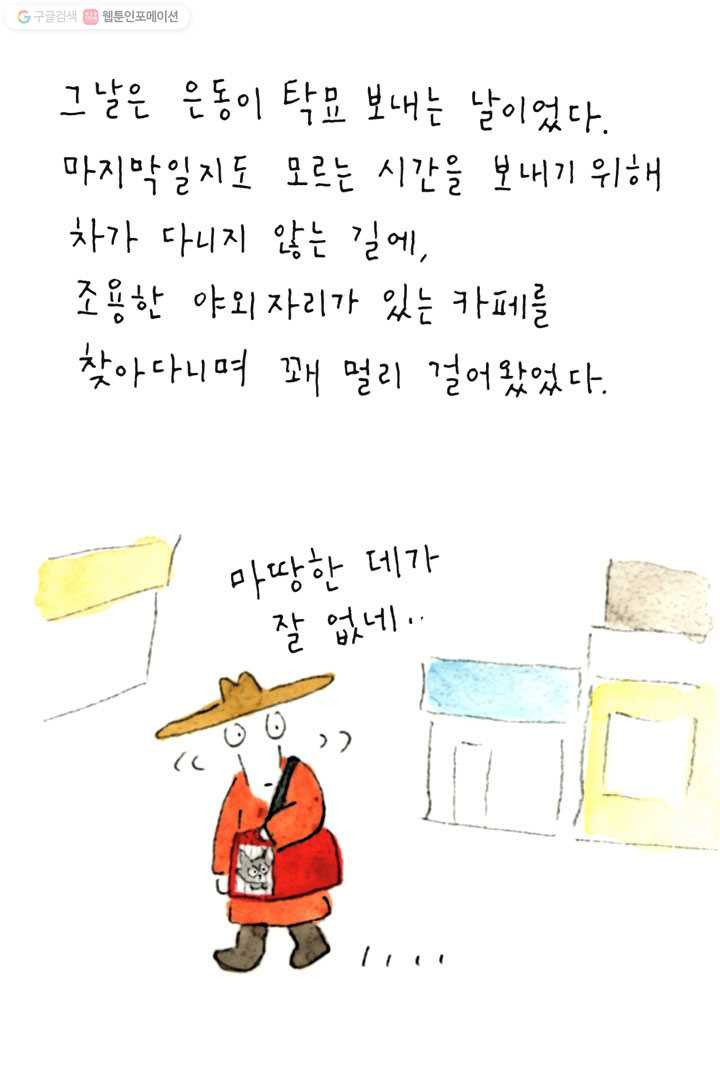 구글검색 웹툰인포메이션
그날은 은동이 탁묘 보내는 날이었다.
마지막일지도 모르는 시간을 보내기 위해
차가 다니지 않는 길에,
조용한 야외 자리가 있는 카페를
찾아다니며 꽤 멀리 걸어왔었다.
마땅한 데가
잘 없네..